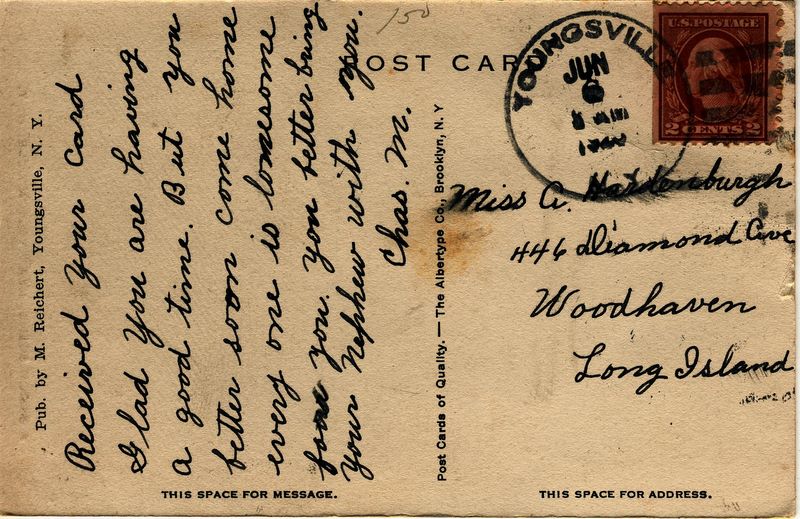 150
POST CAR
YOUNGSVILLE
JUN
6
U.S. POSTAGE
2 CENTS 2
Pub. by M. Reichert, Youngsville, N. Y.
Received Your Card
Glad You are having
a good time. But you
better soon come home
every one is lonesome
for you. You better bring
your Nephew with you.
Chas. M.
Post Cards of Quality. — The Albertype Co., Brooklyn, N. Y
Miss A. Hardenburgh
446 Diamond Ave
Woodhaven
Long Island
THIS SPACE FOR MESSAGE.
THIS SPACE FOR ADDRESS.